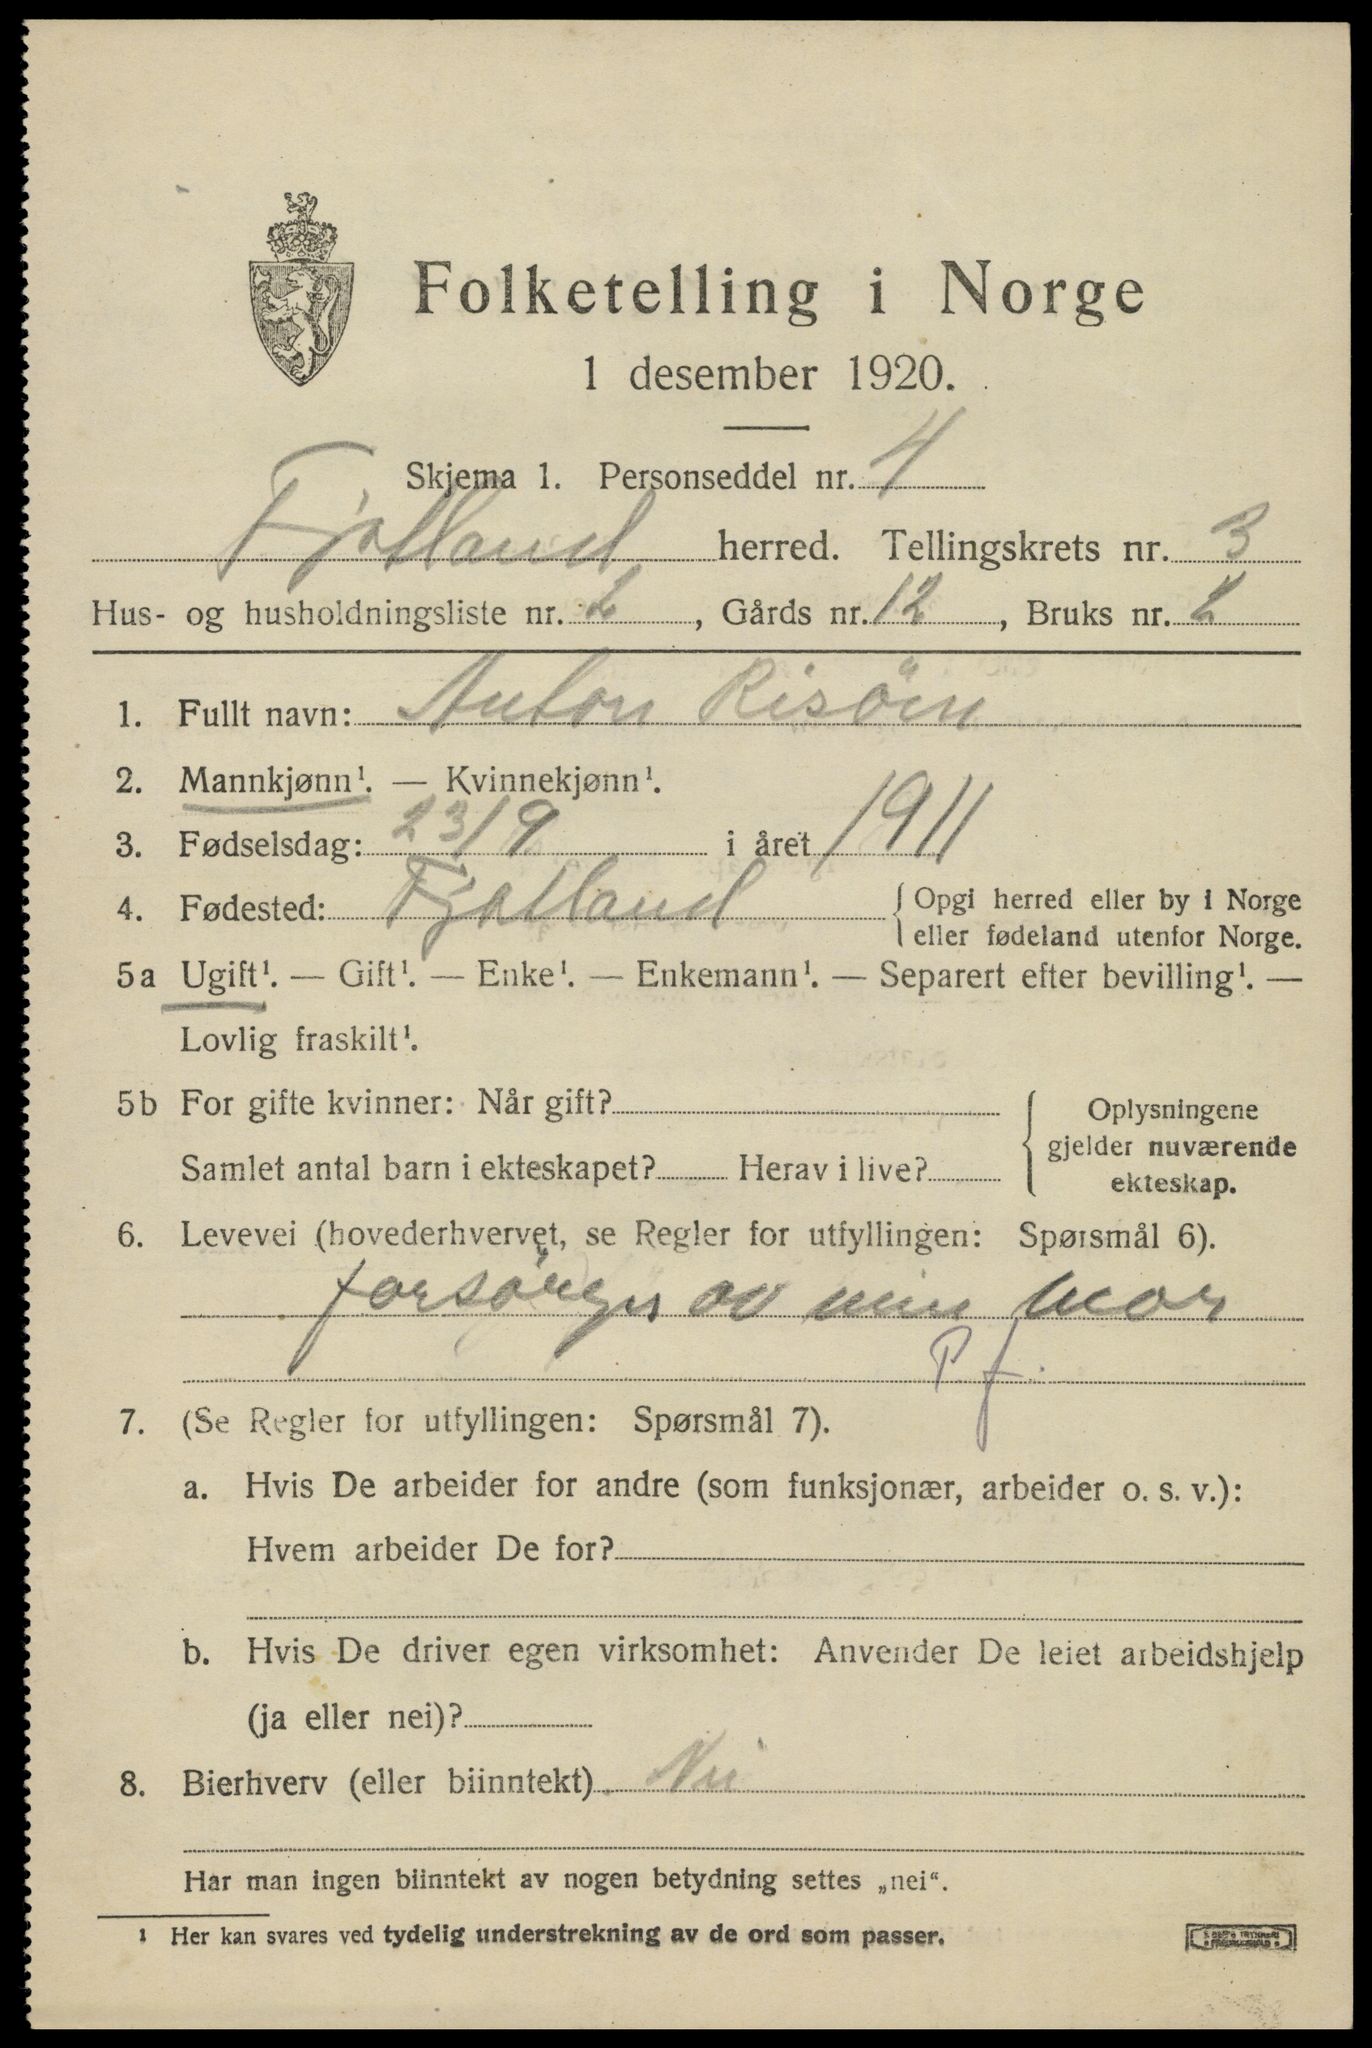 Folketelling i Norge
1 desember 1920.
Skjema 1. Personseddel nr. 4
Fjotland herred. Tellingskrets nr. 3
Hus- og husholdningsliste nr. 2, Gårds nr. 12, Bruks nr. 2
1. Fullt navn: Anton Risöin
2. Mannkjønn¹. — Kvinnekjønn¹.
3. Fødselsdag: 23/9 i året 1911
4. Fødested: Fjotland { Opgi herred eller by i Norge
eller fødeland utenfor Norge.
5a Ugift¹. — Gift¹. — Enke¹. — Enkemann¹. — Separert efter bevilling¹. —
Lovlig fraskilt¹.
5b For gifte kvinner: Når gift?
Samlet antal barn i ekteskapet? Herav i live?
Oplysningene
gjelder nuværende
ekteskap.
6. Levevei (hovederhvervet, se Regler for utfyllingen: Spørsmål 6).
forsørges av min mor
P f.
7. (Se Regler for utfyllingen: Spørsmål 7).
a. Hvis De arbeider for andre (som funksjonær, arbeider o. s. v.):
Hvem arbeider De for?
b. Hvis De driver egen virksomhet: Anvender De leiet arbeidshjelp
(ja eller nei)?
8. Bierhverv (eller biinntekt) Nei
Har man ingen biinntekt av nogen betydning settes „nei“.
¹ Her kan svares ved tydelig understrekning av de ord som passer.